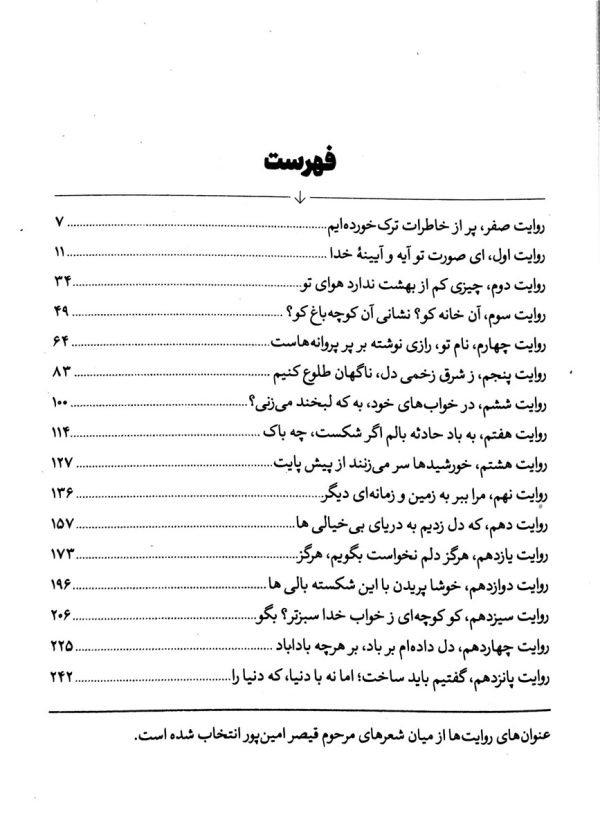 فهرست
روایت صفر، پر از خاطرات ترک‌خورده‌ایم ........ ۷
روایت اول، ای صورت تو آیه و آیینهٔ خدا ........ ۱۱
روایت دوم، چیزی کم از بهشت ندارد هوای تو ........ ۳۴
روایت سوم، آن خانه کو؟ نشانی آن کوچه‌باغ کو؟ ........ ۴۹
روایت چهارم، نام تو، رازی نوشته بر پر پروانه‌هاست ........ ۶۴
روایت پنجم، ز شرق زخمی دل، ناگهان طلوع کنیم ........ ۸۳
روایت ششم، در خواب‌های خود، به که لبخند می‌زنی؟ ........ ۱۰۰
روایت هفتم، به باد حادثه بالم اگر شکست، چه باک ........ ۱۱۴
روایت هشتم، خورشیدها سر می‌زنند از پیش پایت ........ ۱۲۷
روایت نهم، مرا ببر به زمین و زمانه‌ای دیگر ........ ۱۳۶
روایت دهم، که دل زدیم به دریای بی‌خیالی ها ........ ۱۵۷
روایت یازدهم، هرگز دلم نخواست بگویم، هرگز ........ ۱۷۳
روایت دوازدهم، خوشا پریدن با این شکسته بالی ها ........ ۱۹۶
روایت سیزدهم، کو کوچه‌ای ز خواب خدا سبزتر؟ بگو ........ ۲۰۶
روایت چهاردهم، دل داده‌ام بر باد، بر هرچه باداباد ........ ۲۲۵
روایت پانزدهم، گفتیم باید ساخت؛ اما نه با دنیا، که دنیا را ........ ۲۴۲
عنوان‌های روایت‌ها از میان شعرهای مرحوم قیصر امین‌پور انتخاب شده است.